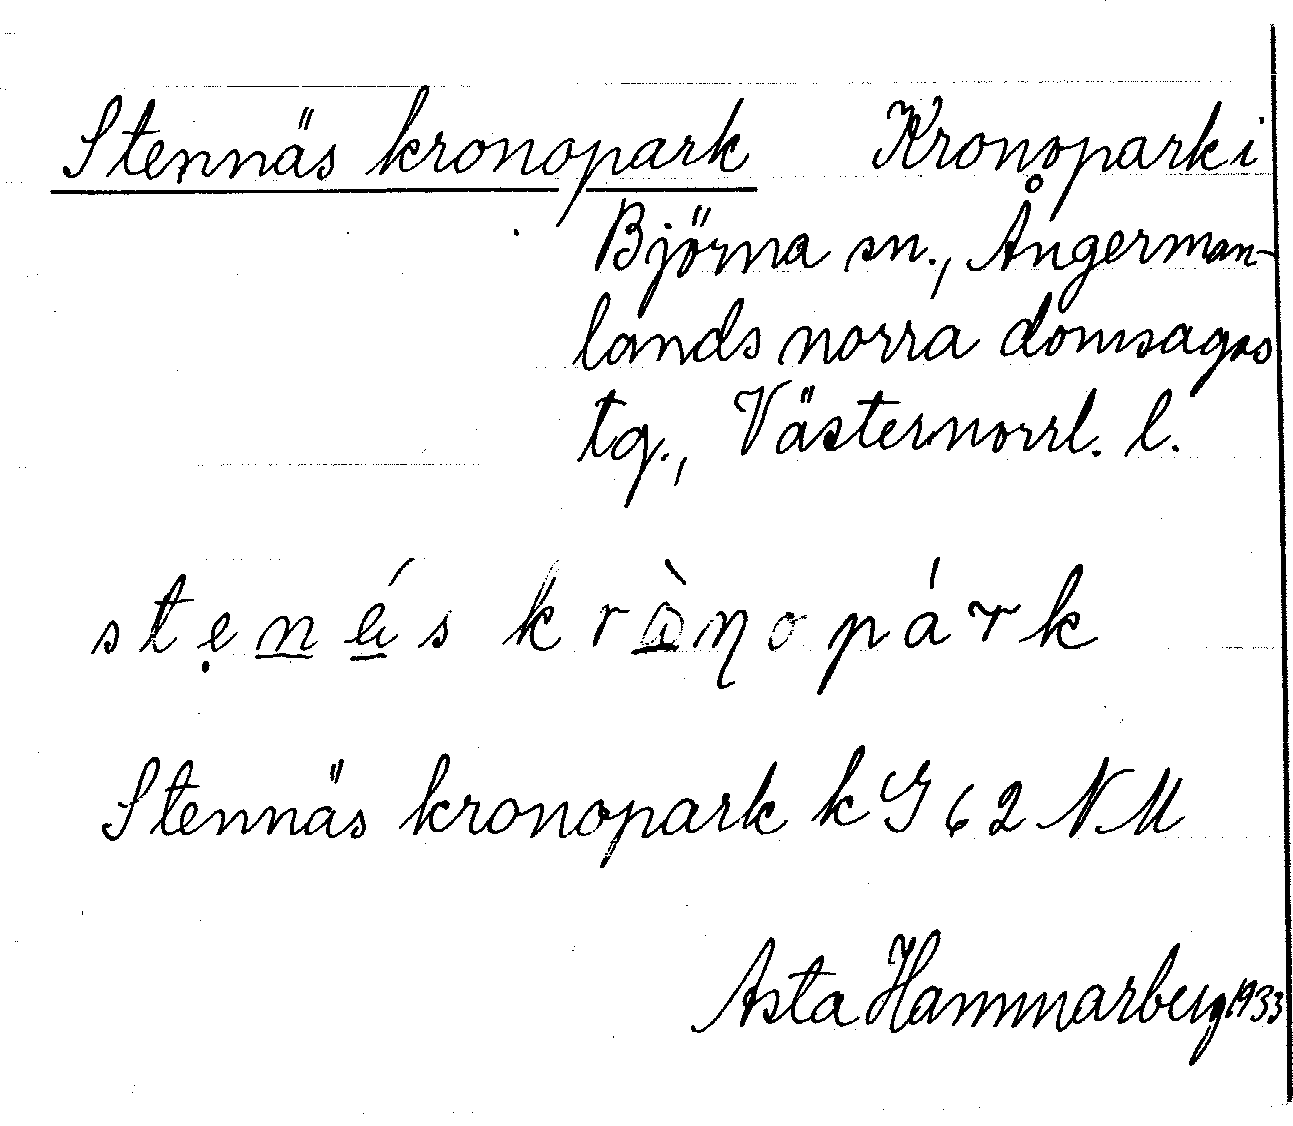 Stennäs kronopark Kronopark i
Björna sn., Ångerman-
lands norra domsagas
tg., Västernorrl. l.
stẹn̲ä̲́s krò̲ŋopárk
Stennäs kronopark k G 62 NM
Asta Hammarberg 1933